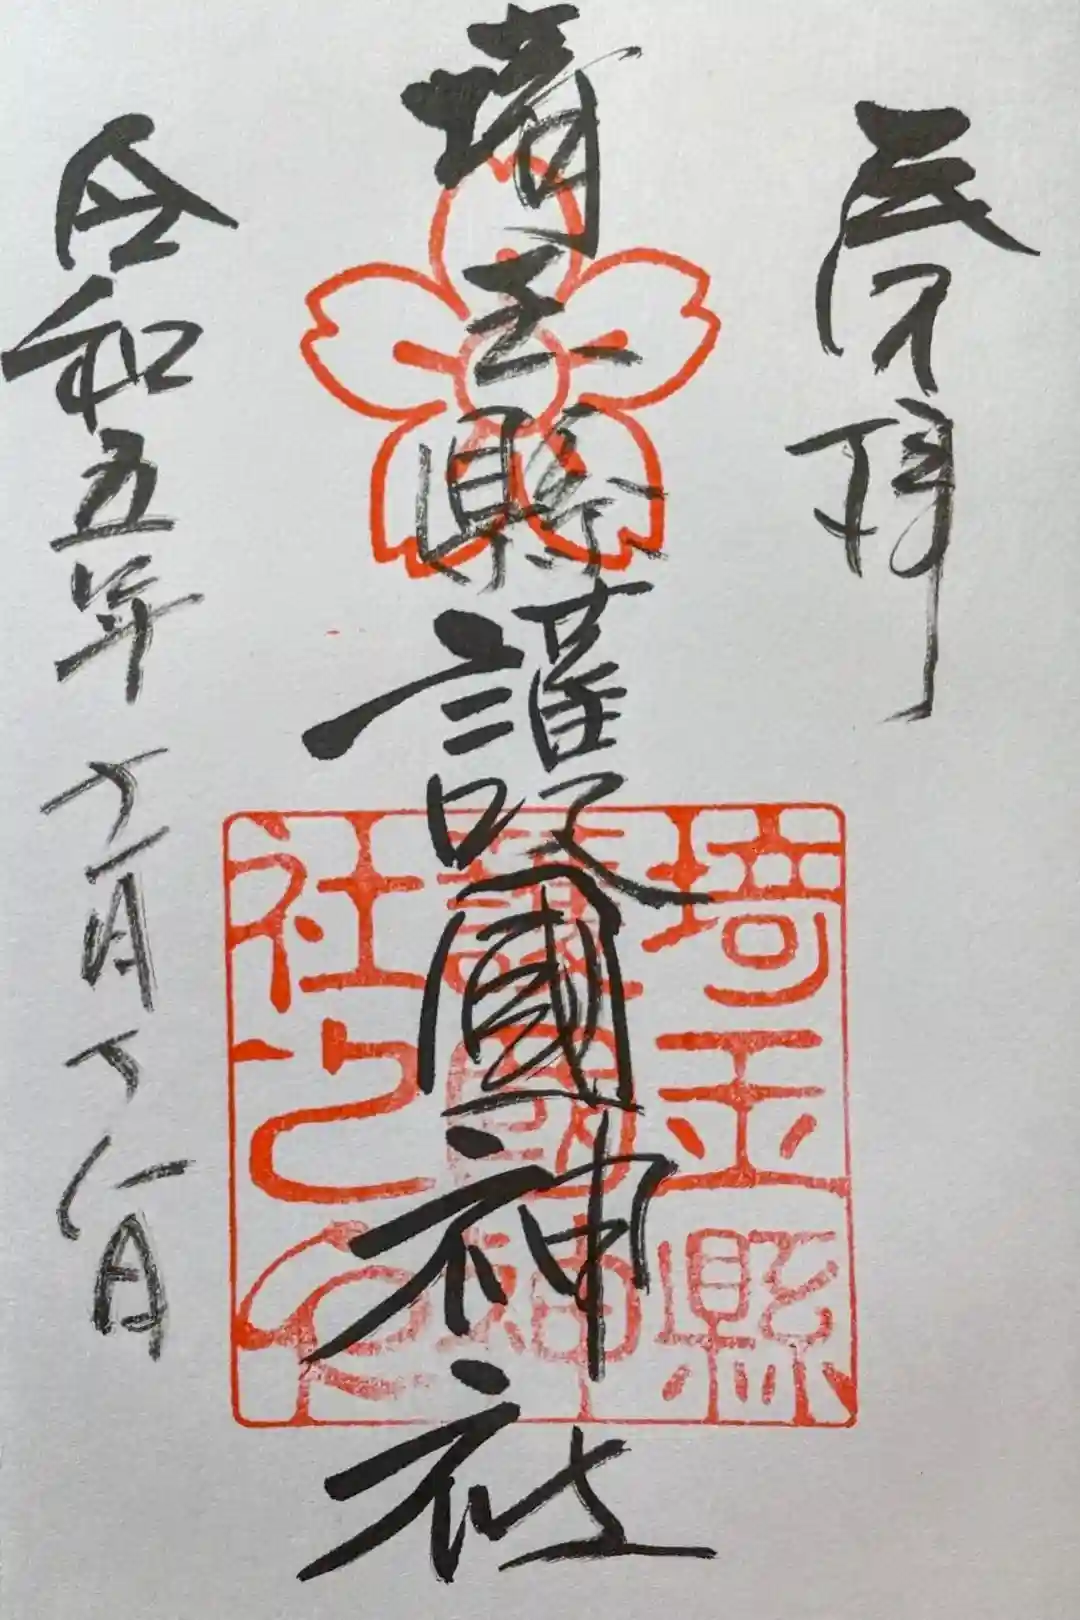 奉拝
埼玉縣護國神社
令和五年 月十八日
埼玉縣
護國神
社之印